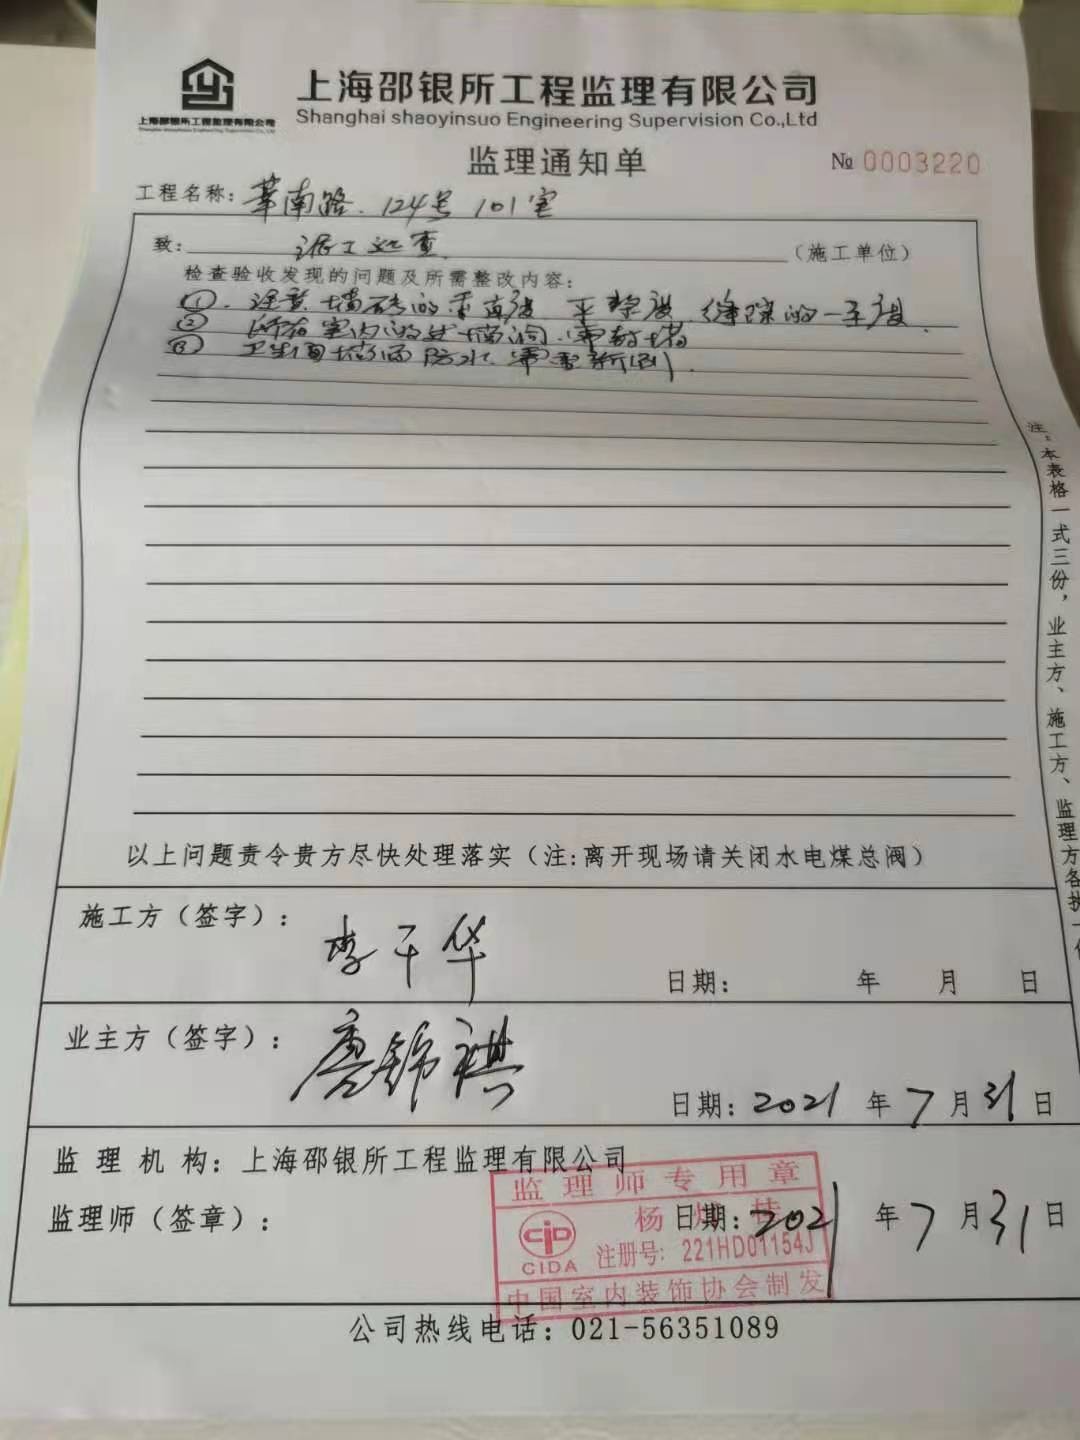 上海邵银所工程监理有限公司
Shanghai shaoyinsuo Engineering Supervision Co.,Ltd
上海邵银所工程监理有限公司
监理通知单
№ 0003220
工程名称: 莘南路.124号101室
致: 泥工巡查 (施工单位)
检查验收发现的问题及所需整改内容:
① 注意墙砖的垂直度 平整度 缝隙的一至度.
② 所有室内的 墙洞.需 墙
③ 卫生间墙面防水.需重新刷.
以上问题责令贵方尽快处理落实 (注:离开现场请关闭水电煤总阀)
施工方 (签字): 李千华
日期: 年 月 日
业主方 (签字): 唐锦祺
日期: 2021 年 7 月 31 日
监 理 机 构: 上海邵银所工程监理有限公司
监理师 (签章): 日期: 2021 年 7 月 31 日
监理师专用章
杨
CIDA 注册号: 221HD01154J
中国室内装饰协会制发
公司热线电话: 021-56351089
注:本表格一式三份，业主方、施工方、监理方各执一